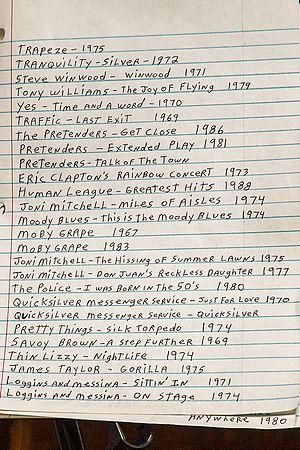 TRAPEZE - 1975
TRANQUILITY - SILVER - 1972
STEVE WINWOOD - WINWOOD 1971
TONY WILLIAMS - THE JOY OF FLYING 1979
YES - TIME AND A WORD - 1970
TRAFFIC - LAST EXIT 1969
THE PRETENDERS - GET CLOSE 1986
PRETENDERS - EXTENDED PLAY 1981
PRETENDERS - TALK OF THE TOWN
ERIC CLAPTON'S RAINBOW CONCERT 1973
HUMAN LEAGUE - GREATEST HITS 1988
JONI MITCHELL - MILES OF AISLES 1974
MOODY BLUES - THIS IS THE MOODY BLUES 1974
MOBY GRAPE 1967
MOBY GRAPE 1983
JONI MITCHELL - THE HISSING OF SUMMER LAWNS 1975
JONI MITCHELL - DON JUAN'S RECKLESS DAUGHTER 1977
THE POLICE - I WAS BORN IN THE 50'S 1980
QUICKSILVER MESSENGER SERVICE - JUST FOR LOVE 1970
QUICKSILVER MESSENGER SERVICE - QUICKSILVER
PRETTY THINGS - SILK TORPEDO 1974
SAVOY BROWN - A STEP FURTHER 1969
THIN LIZZY - NIGHTLIFE 1974
JAMES TAYLOR - GORILLA 1975
LOGGINS AND MESSINA - SITTIN' IN 1971
LOGGINS AND MESSINA - ON STAGE 1974
ANYWHERE 1980